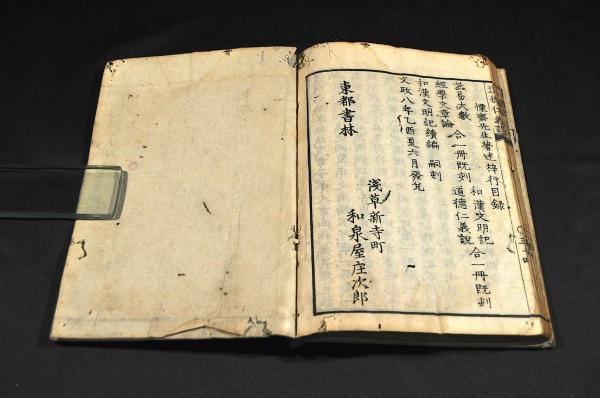 慊齋先生著述梓行目録
和漢文明記 合一冊既刻
芸易大數 合一冊既刻 道德仁義説
經學文章論
和漢文明記續編 嗣刻
文政八年乙酉夏六月發兌
淺草新寺町
東都書林
和泉屋庄次郎